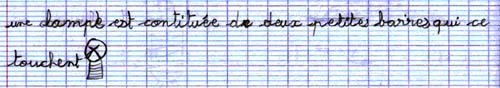 une lampe est contituée de deux petites barres qui ce
touchent